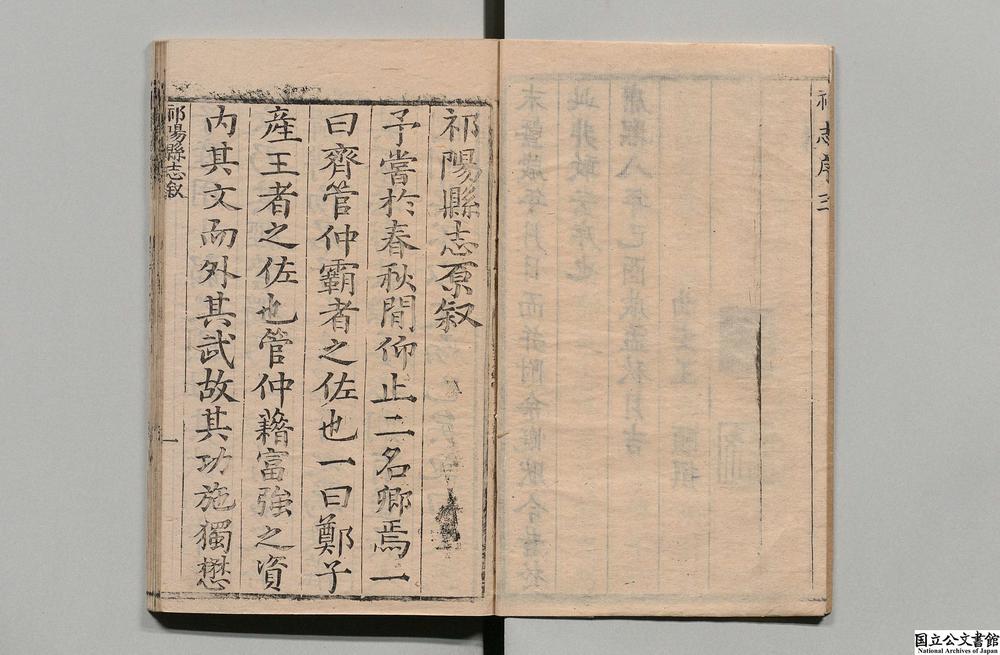 祁志序 三
祁陽縣志原叙
予嘗於春秋間仰止二名卿焉一
曰齊管仲霸者之佐也一曰鄭子
產王者之佐也管仲藉富強之資
内其文而外其武故其功施獨懋
祁陽縣志叙
一
国立公文書館
National Archives of Japan